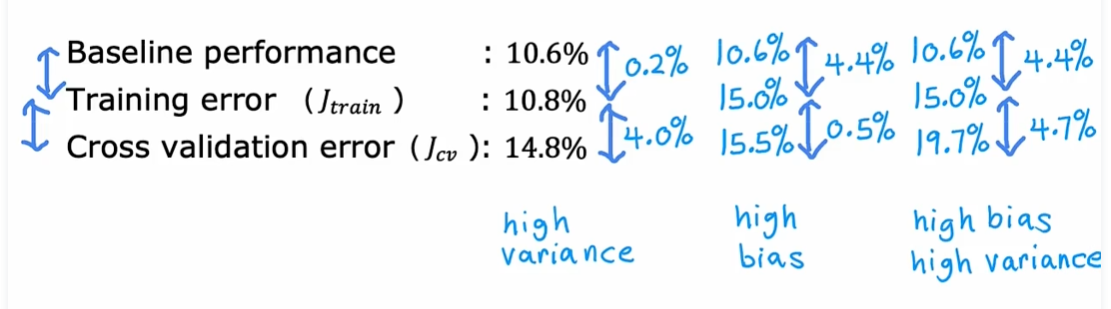 Baseline performance : 10.6% 0.2% 10.6% 4.4% 10.6% 4.4%
Training error (J_train) : 10.8% 15.0% 15.0%
Cross validation error (J_cv): 14.8% 4.0% 15.5% 0.5% 19.7% 4.7%
high variance
high bias
high bias
high variance